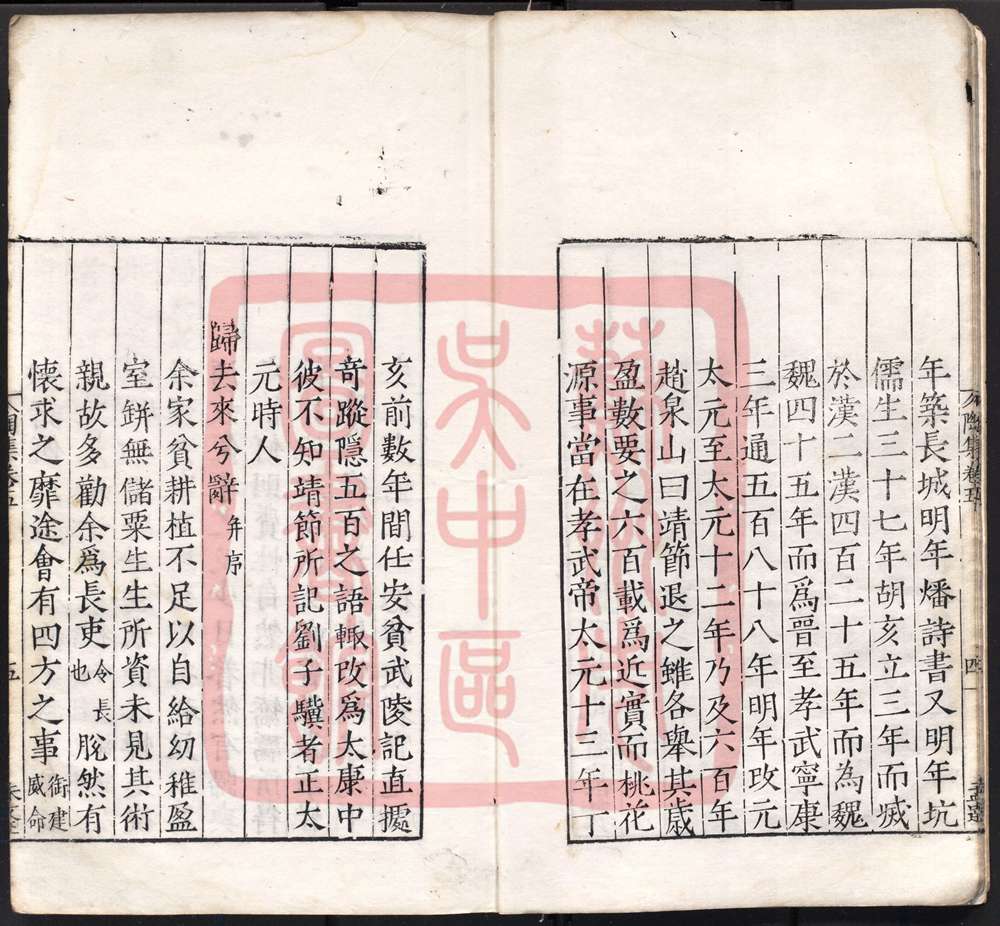 年築長城明年燔詩書又明年坑
儒生三十七年胡亥立三年而滅
於漢二漢四百二十五年而為魏
魏四十五年而爲晉至孝武寧康
三年通五百八十八年明年改元
太元至太元十二年乃及六百年
趙泉山曰靖節退之雖各舉其歲
盈數要之六百載爲近實而桃花
源事當在孝武帝太元十三年丁
亥前數年間任安貧武陵記直據
奇蹤隱五百之語輙改爲太康中
彼不知靖節所記劉子驥者正太
元時人
歸去來兮辭 并序
余家貧耕植不足以自給幼稚盈
室缾無儲粟生生所資未見其術
親故多勸余爲長吏 令長也 脫然有
懷求之靡途會有四方之事 銜建威命
陶集卷五
四
陶集卷五
五
蘇州市
吴中區
圖書館